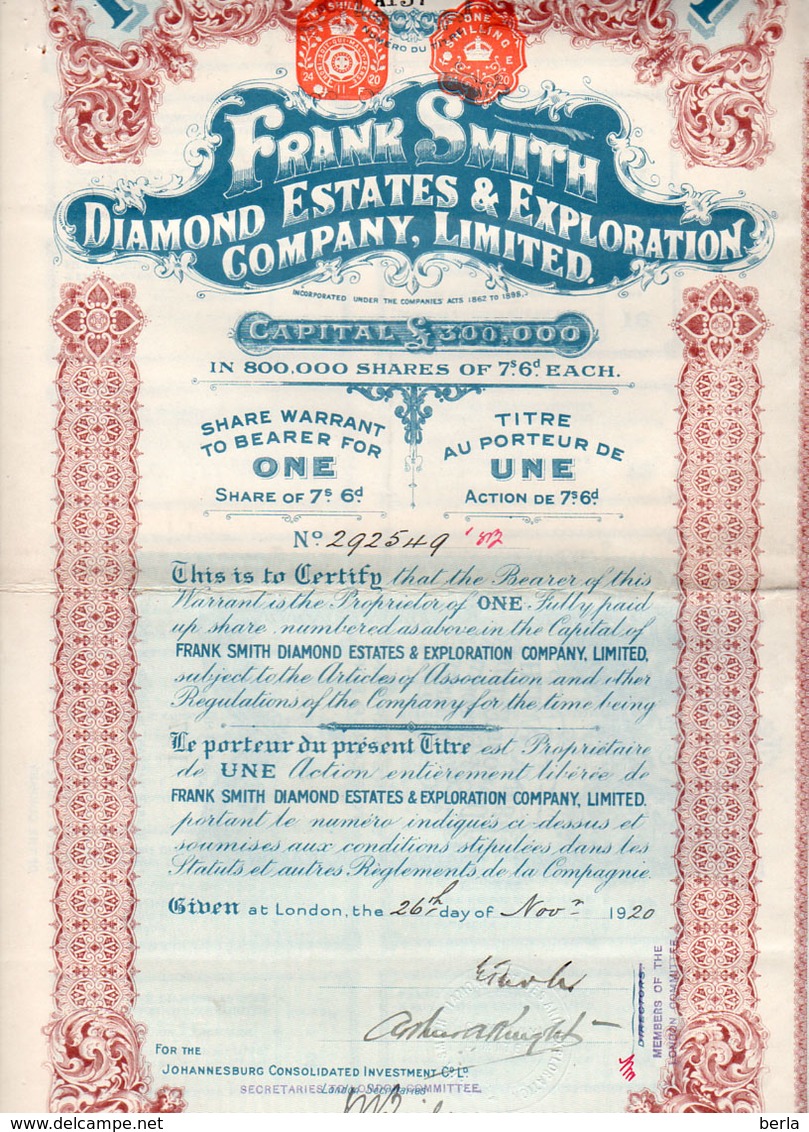 A157
NUMERO DU
ONE
SHILLING
24
20
11
F
E
20
FRANK SMITH
DIAMOND ESTATES & EXPLORATION
COMPANY, LIMITED.
INCORPORATED UNDER THE COMPANIES ACTS 1862 TO 1898.
CAPITAL £300,000
IN 800,000 SHARES OF 7s. 6d. EACH.
SHARE WARRANT
TO BEARER FOR
ONE
SHARE OF 7s 6d
TITRE
AU PORTEUR DE
UNE
ACTION DE 7s 6d
No 292549
This is to Certify that the Bearer of this
Warrant is the Proprietor of ONE Fully paid
up share numbered as above in the Capital of
FRANK SMITH DIAMOND ESTATES & EXPLORATION COMPANY, LIMITED,
subject to the Articles of Association and other
Regulations of the Company for the time being
Le porteur du présent Titre est Propriétaire
de UNE Action entièrement libérée de
FRANK SMITH DIAMOND ESTATES & EXPLORATION COMPANY, LIMITED.
portant le numéro indiqués ci-dessus et
soumises aux conditions stipulées dans les
Statuts et autres Règlements de la Compagnie.
Given at London, the 26th day of Novr 1920
Arthur A Knight
DIRECTORS
MEMBERS OF THE
LONDON COMMITTEE
FOR THE
JOHANNESBURG CONSOLIDATED INVESTMENT Co. LD.
SECRETARIES TO LONDON COMMITTEE.
London Secretaries
berla